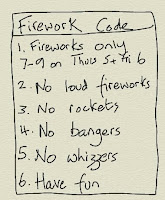 Firework Code
1. Fireworks only
7-9 on Thurs 5 + Fri 6
2. No loud fireworks
3. No rockets
4. No bangers
5. No whizzers
6. Have fun